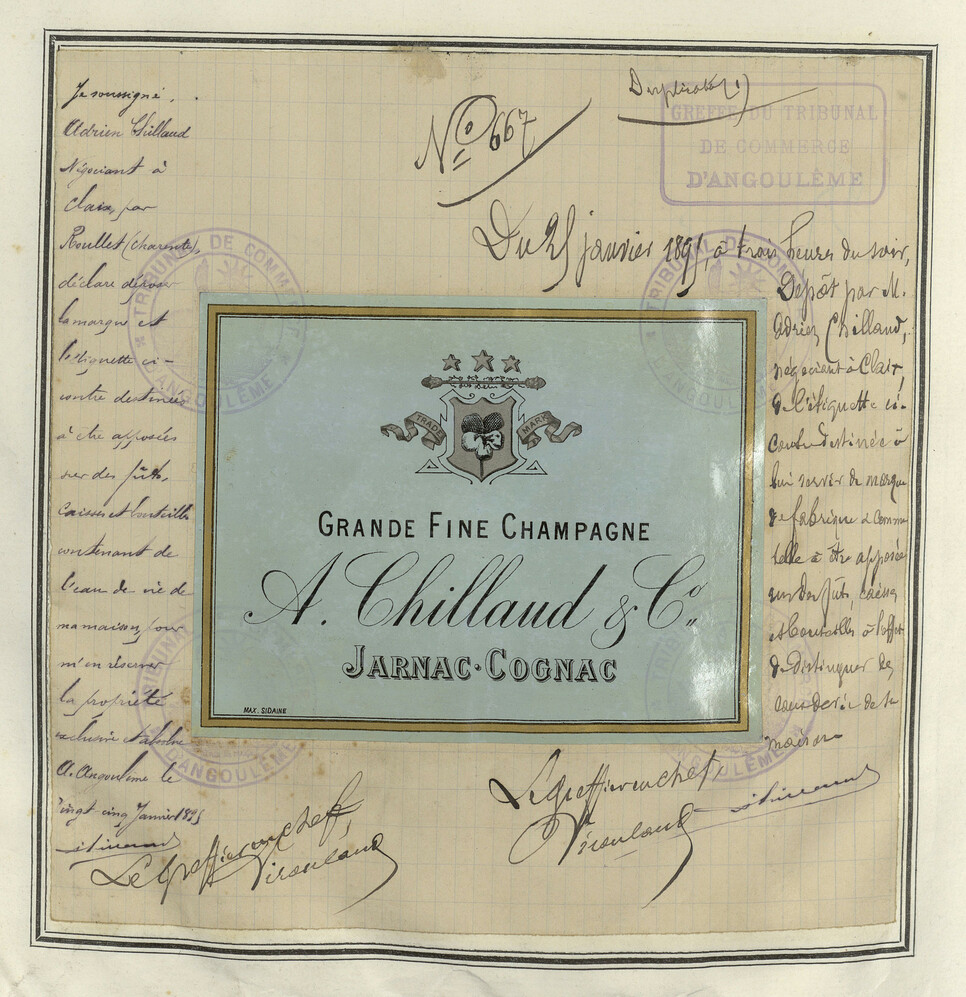 Duplicata
N° 667
GREFFE DU TRIBUNAL
DE COMMERCE
D'ANGOULÊME
Je soussigné,
Adrien Chillaud
Négociant à
Claix, par
Roullet (Charente),
déclare déposer
la marque et
l'étiquette ci-
contre destinées
à être apposées
sur des fûts,
caisses et bouteilles
contenant de
l'eau de vie de
ma maison, pour
m'en réserver
la propriété
exclusive et absolue
A. Angoulême le
vingt cinq Janvier 1895
Le Greffier en chef,
Viroulaud
Du 25 janvier 1895, à trois heures du soir,
Dépôt par M.
Adrien Chillaud,
négociant à Claix,
de l'étiquette ci-
contre destinée à
lui servir de marque
de fabrique et
à être apposée
sur des fûts, caisses
et bouteilles à l'effet
de distinguer les
eau de vie de sa
maison
Le greffier en chef
Viroulaud
TRADE MARK
GRANDE FINE CHAMPAGNE
A. Chillaud & Co.
JARNAC-COGNAC
MAX. SIDAINE
TRIBUNAL DE COMMERCE
D'ANGOULÊME
TRIBUNAL DE COM
D'ANGOULÊME
D'ANGOULÊME
ANGOULÊME